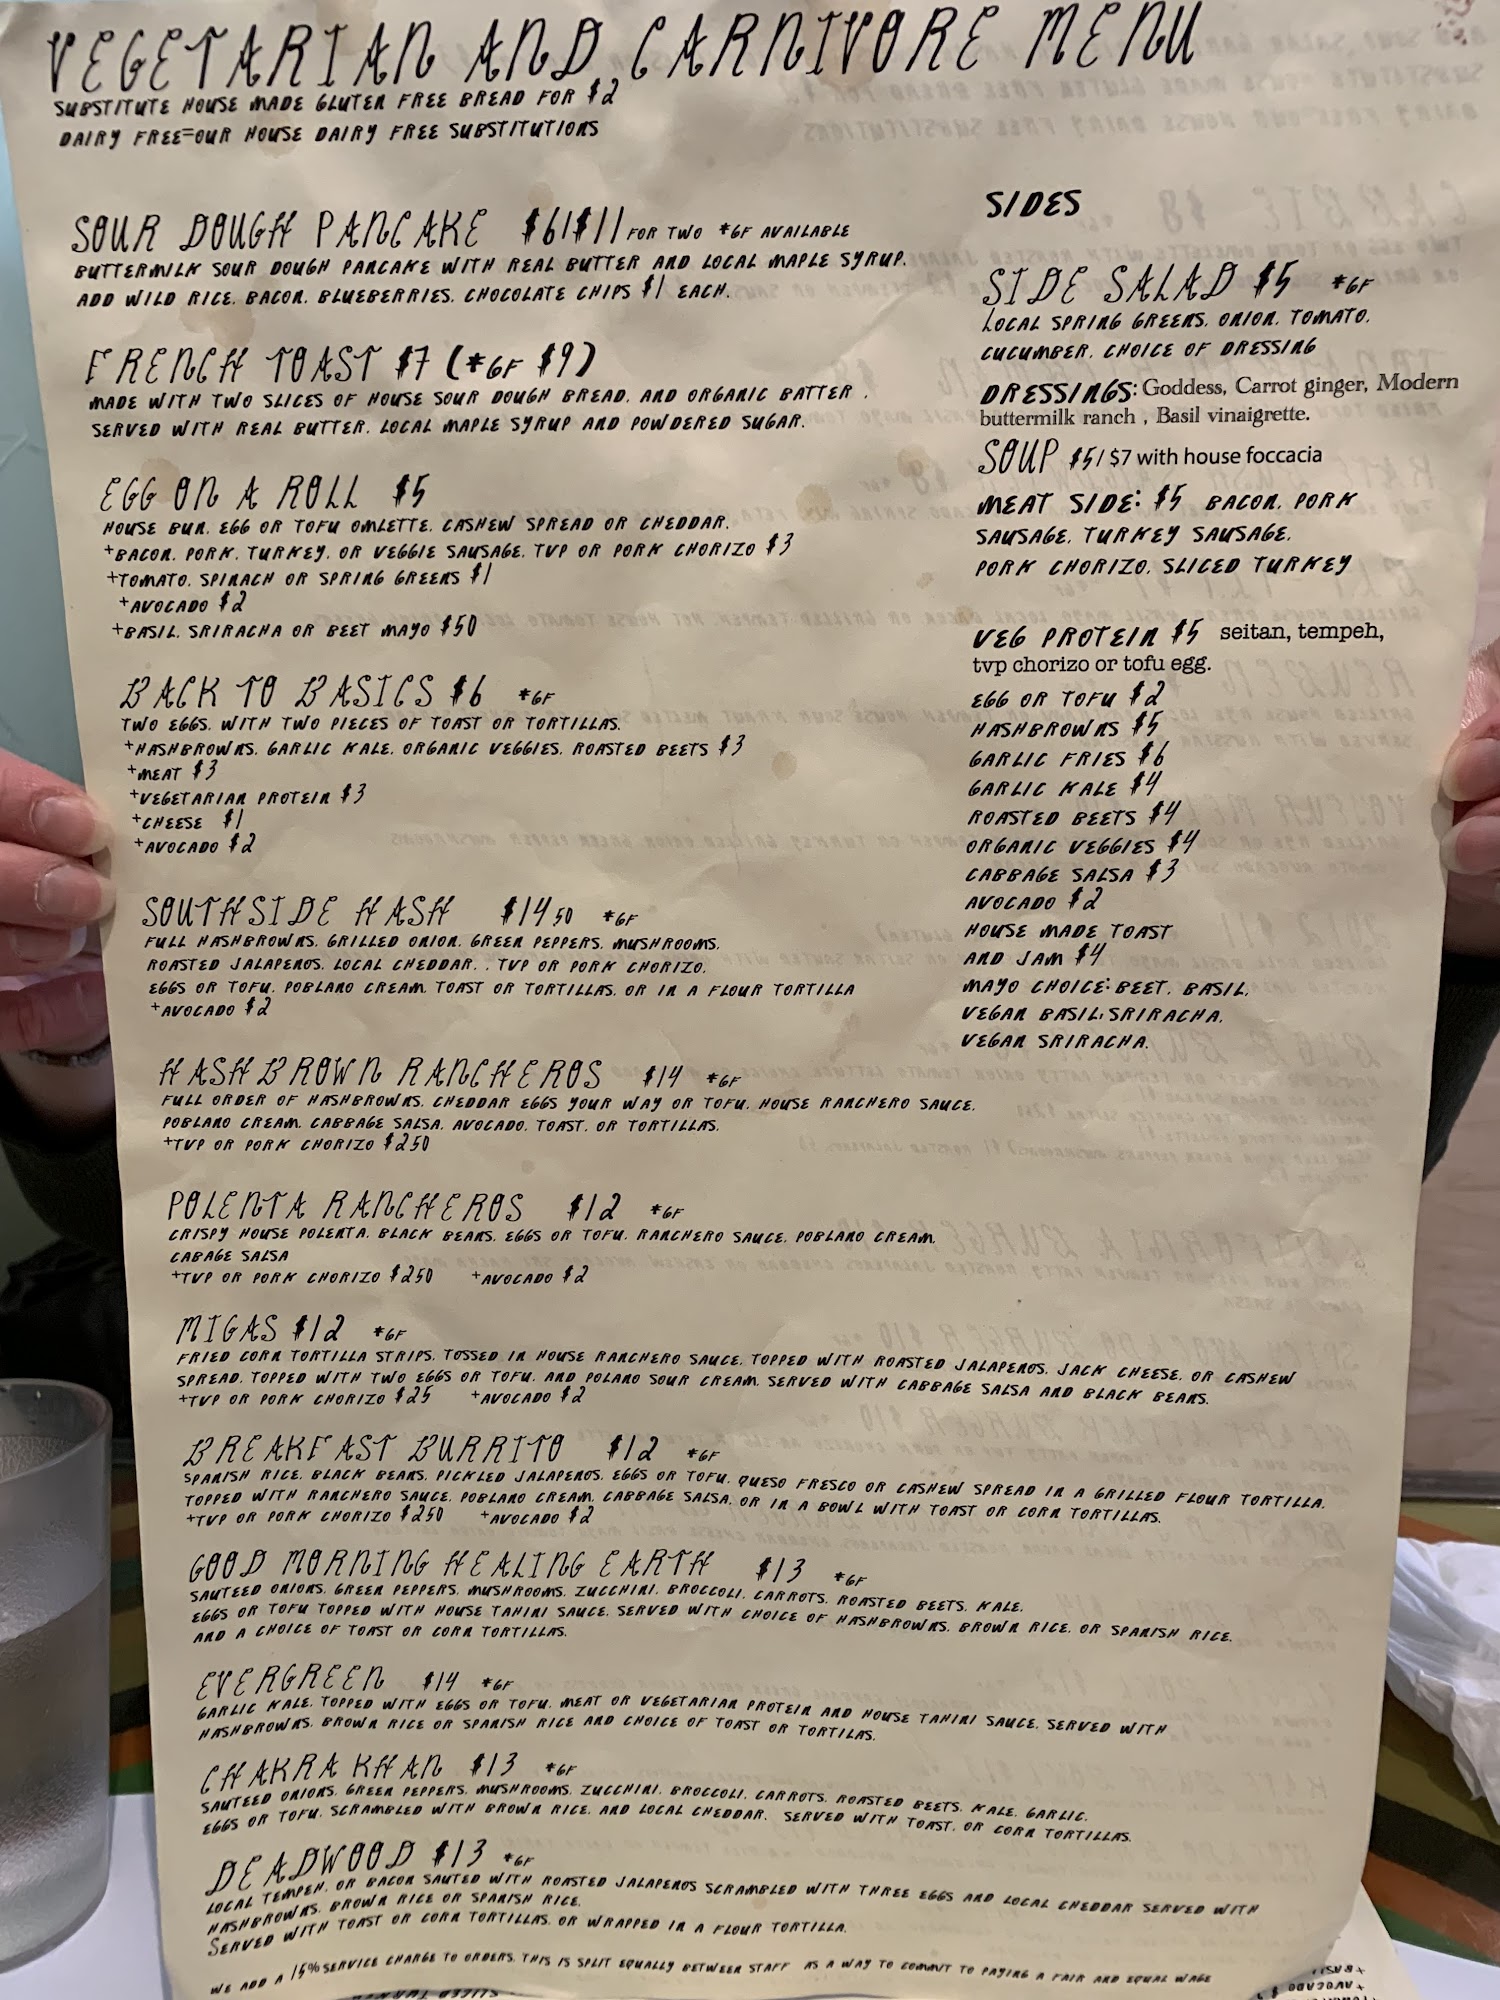 VEGETARIAN AND CARNIVORE MENU
SUBSTITUTE HOUSE MADE GLUTEN FREE BREAD FOR $2
DAIRY FREE=OUR HOUSE DAIRY FREE SUBSTITUTIONS
SOUR DOUGH PANCAKE $6/$11 FOR TWO *GF AVAILABLE
BUTTERMILK SOUR DOUGH PANCAKE WITH REAL BUTTER AND LOCAL MAPLE SYRUP.
ADD WILD RICE, BACON, BLUEBERRIES, CHOCOLATE CHIPS $1 EACH.
FRENCH TOAST $7 (*GF $9)
MADE WITH TWO SLICES OF HOUSE SOUR DOUGH BREAD, AND ORGANIC BATTER .
SERVED WITH REAL BUTTER, LOCAL MAPLE SYRUP AND POWDERED SUGAR.
EGG ON A ROLL $5
HOUSE BUN, EGG OR TOFU OMLETTE, CASHEW SPREAD OR CHEDDAR.
+BACON, PORK, TURKEY, OR VEGGIE SAUSAGE, TVP OR PORK CHORIZO $3
+TOMATO, SPINACH OR SPRING GREENS $1
+AVOCADO $2
+BASIL, SRIRACHA OR BEET MAYO $50
BACK TO BASICS $6 *GF
TWO EGGS, WITH TWO PIECES OF TOAST OR TORTILLAS.
+HASHBROWNS, GARLIC KALE, ORGANIC VEGGIES, ROASTED BEETS $3
+MEAT $3
+VEGETARIAN PROTEIN $3
+CHEESE $1
+AVOCADO $2
SOUTHSIDE HASH $14 50 *GF
FULL HASHBROWNS, GRILLED ONION, GREEN PEPPERS, MUSHROOMS,
ROASTED JALAPENOS, LOCAL CHEDDAR, , TVP OR PORK CHORIZO,
EGGS OR TOFU, POBLANO CREAM, TOAST OR TORTILLAS, OR IN A FLOUR TORTILLA
+AVOCADO $2
HASHBROWN RANCHEROS $14 *GF
FULL ORDER OF HASHBROWNS, CHEDDAR EGGS YOUR WAY OR TOFU, HOUSE RANCHERO SAUCE,
POBLANO CREAM, CABBAGE SALSA, AVOCADO, TOAST, OR TORTILLAS.
+TVP OR PORK CHORIZO $250
POLENTA RANCHEROS $12 *GF
CRISPY HOUSE POLENTA, BLACK BEANS, EGGS OR TOFU, RANCHERO SAUCE, POBLANO CREAM,
CABAGE SALSA
+TVP OR PORK CHORIZO $250 +AVOCADO $2
MIGAS $12 *GF
FRIED CORN TORTILLA STRIPS, TOSSED IN HOUSE RANCHERO SAUCE, TOPPED WITH ROASTED JALAPENOS, JACK CHEESE, OR CASHEW
SPREAD, TOPPED WITH TWO EGGS OR TOFU, AND POLANO SOUR CREAM, SERVED WITH CABBAGE SALSA AND BLACK BEANS.
+TVP OR PORK CHORIZO $25 +AVOCADO $2
BREAKFAST BURRITO $12 *GF
SPANISH RICE, BLACK BEANS, PICKLED JALAPENOS, EGGS OR TOFU, QUESO FRESCO OR CASHEW SPREAD IN A GRILLED FLOUR TORTILLA,
TOPPED WITH RANCHERO SAUCE, POBLANO CREAM, CABBAGE SALSA, OR IN A BOWL WITH TOAST OR CORN TORTILLAS.
+TVP OR PORK CHORIZO $250 +AVOCADO $2
GOOD MORNING HEALING EARTH $13 *GF
SAUTEED ONIONS, GREEN PEPPERS, MUSHROOMS, ZUCCHINI, BROCCOLI, CARROTS, ROASTED BEETS, KALE,
EGGS OR TOFU TOPPED WITH HOUSE TAHINI SAUCE, SERVED WITH CHOICE OF HASHBROWNS, BROWN RICE, OR SPANISH RICE,
AND A CHOICE OF TOAST OR CORN TORTILLAS.
EVERGREEN $14 *GF
GARLIC KALE, TOPPED WITH EGGS OR TOFU, MEAT OR VEGETARIAN PROTEIN AND HOUSE TAHINI SAUCE, SERVED WITH
HASHBROWNS, BROWN RICE OR SPANISH RICE AND CHOICE OF TOAST OR TORTILAS.
CHAKRA KHAN $13 *GF
SAUTEED ONIONS, GREEN PEPPERS, MUSHROOMS, ZUCCHINI, BROCCOLI, CARROTS, ROASTED BEETS, KALE, GARLIC,
EGGS OR TOFU, SCRAMBLED WITH BROWN RICE, AND LOCAL CHEDDAR. SERVED WITH TOAST, OR CORN TORTILLAS.
DEADWOOD $13 *GF
LOCAL TEMPEH, OR BACON SAUTED WITH ROASTED JALAPENOS SCRAMBLED WITH THREE EGGS AND LOCAL CHEDDAR SERVED WITH
HASHBROWNS, BROWN RICE OR SPANISH RICE.
SERVED WITH TOAST OR CORN TORTILLAS, OR WRAPPED IN A FLOUR TORTILLA.
WE ADD A 15% SERVICE CHARGE TO ORDERS, THIS IS SPLIT EQUALLY BETWEEN STAFF AS A WAY TO COMMIT TO PAYING A FAIR AND EQUAL WAGE
SIDES
SIDE SALAD $5 *GF
LOCAL SPRING GREENS, ONION, TOMATO,
CUCUMBER, CHOICE OF DRESSING
DRESSINGS: Goddess, Carrot ginger, Modern
buttermilk ranch , Basil vinaigrette.
SOUP $5/ $7 with house foccacia
MEAT SIDE: $5 BACON, PORK
SAUSAGE, TURKEY SAUSAGE,
PORK CHORIZO, SLICED TURKEY
VEG PROTEIN $5 seitan, tempeh,
tvp chorizo or tofu egg.
EGG OR TOFU $2
HASHBROWNS $5
GARLIC FRIES $6
GARLIC KALE $4
ROASTED BEETS $4
ORGANIC VEGGIES $4
CABBAGE SALSA $3
AVOCADO $2
HOUSE MADE TOAST
AND JAM $4
MAYO CHOICE: BEET, BASIL,
VEGAN BASIL, SRIRACHA,
VEGAN SRIRACHA.